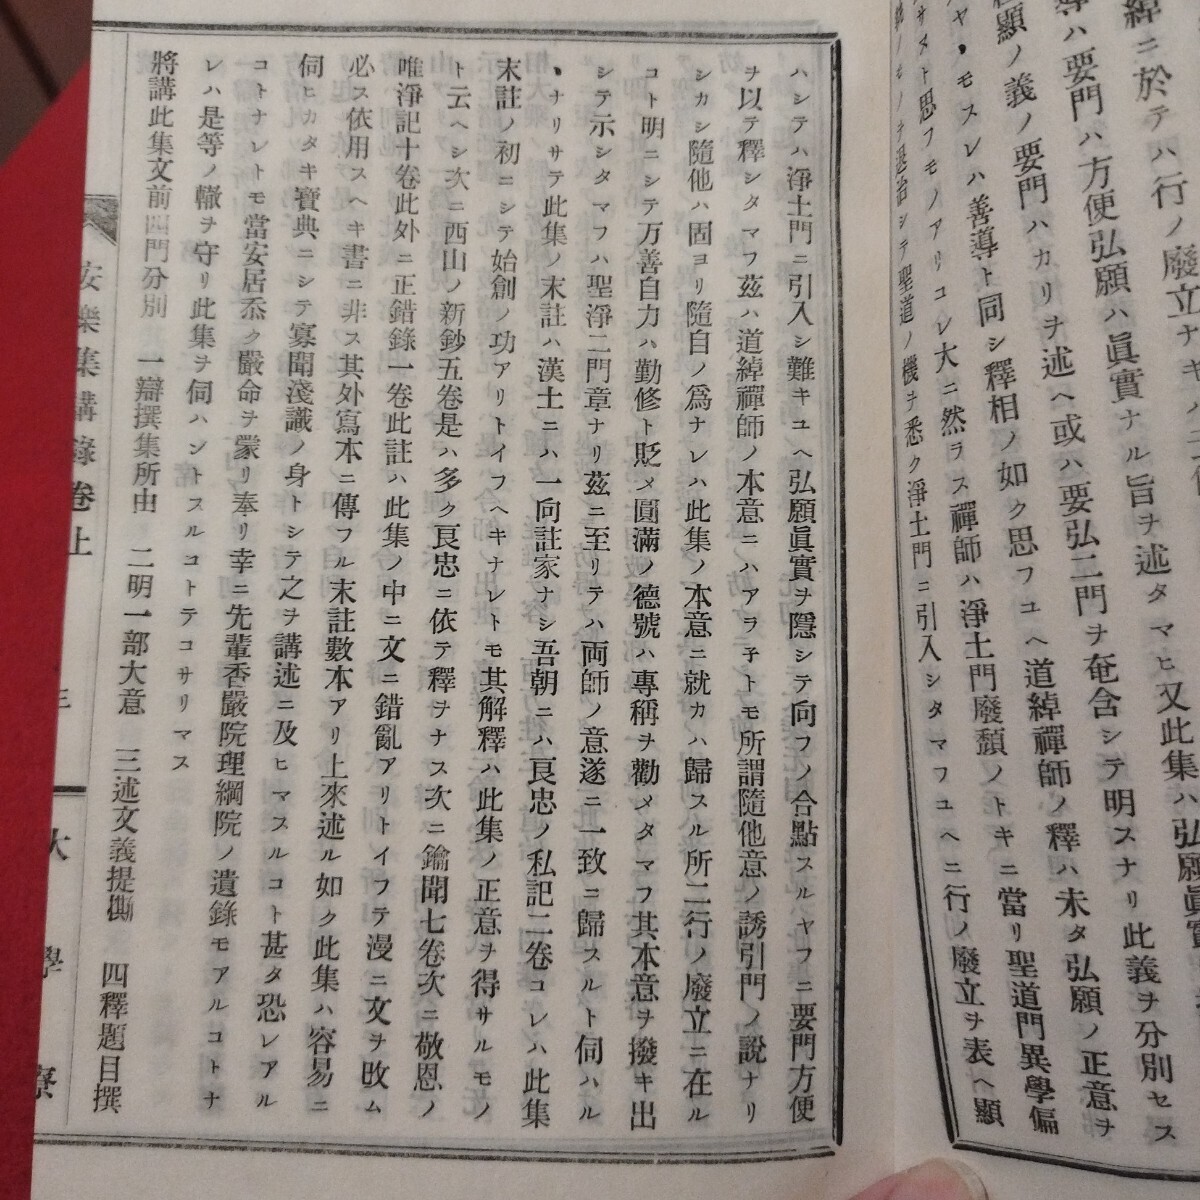 緯ニ於テハ行ノ廢立ナキハ
導ハ要門ハ方便弘願ハ眞實ナル旨ヲ述タマヒ又此集ハ弘願眞實
弘顯ノ義ノ要門ハカリヲ述ヘ或ハ要弘二門ヲ奄含シテ明スナリ此義ヲ分別セス
ヤヽモスレハ善導ト同シ釋相ノ如ク思フユヘ道綽禪師ノ釋ハ未タ弘願ノ正意ヲ
サスト思フモノアリコレ大ニ然ラス禪師ハ淨土門廢頽ノトキニ當リ聖道門異學偏
執ノモノヲ退治シテ聖道ノ機ヲ悉ク淨土門ニ引入シタマフユヘニ行ノ廢立ヲ表ヘ顯
ハシテハ淨土門ニ引入シ難キユヘ弘願眞實ヲ隱シテ向フノ合點スルヤフニ要門方便
ヲ以テ釋シタマフ茲ハ道綽禪師ノ本意ニハアラ子トモ所謂隨他意ノ誘引門ノ說ナリ
シカシ隨他ハ固ヨリ隨自ノ爲ナレハ此集ノ本意ニ就カハ歸スル所二行ノ廢立ニ在ル
コト明ニシテ万善自力ハ勤修ト貶メ圓滿ノ德號ハ專稱ヲ勸メタマフ其本意ヲ撥キ出
シテ示シタマフハ聖淨二門章ナリ茲ニ至リテハ両師ノ意遂ニ一致ニ歸スルト伺ハル
ヽナリサテ此集ノ末註ハ漢土ニハ一向註家ナシ吾朝ニハ良忠ノ私記二卷コレハ此集
末註ノ初ニシテ始創ノ功アリトイフヘキナレトモ其解釋ハ此集ノ正意ヲ得サルモノ
ト云ヘシ次ニ西山ノ新鈔五卷是ハ多ク良忠ニ依テ釋ヲナス次ニ鑰聞七卷次ニ敬恩ノ
唯淨記十卷此外ニ正錯錄一卷此註ハ此集ノ中ニ文ニ錯亂アリトイフテ漫ニ文ヲ攺ム
必ス依用スヘキ書ニ非ス其外寫本ニ傳フル末註數本アリ上來述ル如ク此集ハ容易ニ
伺ヒカタキ寶典ニシテ寡聞淺識ノ身トシテ之ヲ講述ニ及ヒマスルコト甚タ恐レアル
コトナレトモ當安居忝ク嚴命ヲ蒙リ奉リ幸ニ先輩香嚴院理綱院ノ遺錄モアルコトナ
レハ是等ノ轍ヲ守リ此集ヲ伺ハントスルコトテコサリマス
將講此集文前四門分別　一辯撰集所由　二明一部大意　三述文義提撕　四釋題目撰
安樂集講錄卷上　三　大學寮